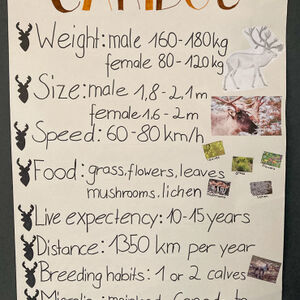 CARIBOU
Weight: male 160-180kg
female 80-120kg
Size: male 1,8-2,1m
female 1.6-2m
Speed: 60-80 km/h
Food: grass, flowers, leaves
mushrooms. lichen
Live expectency: 10-15 years
Distance: 1350 km per year
Breeding habits: 1 or 2 calves